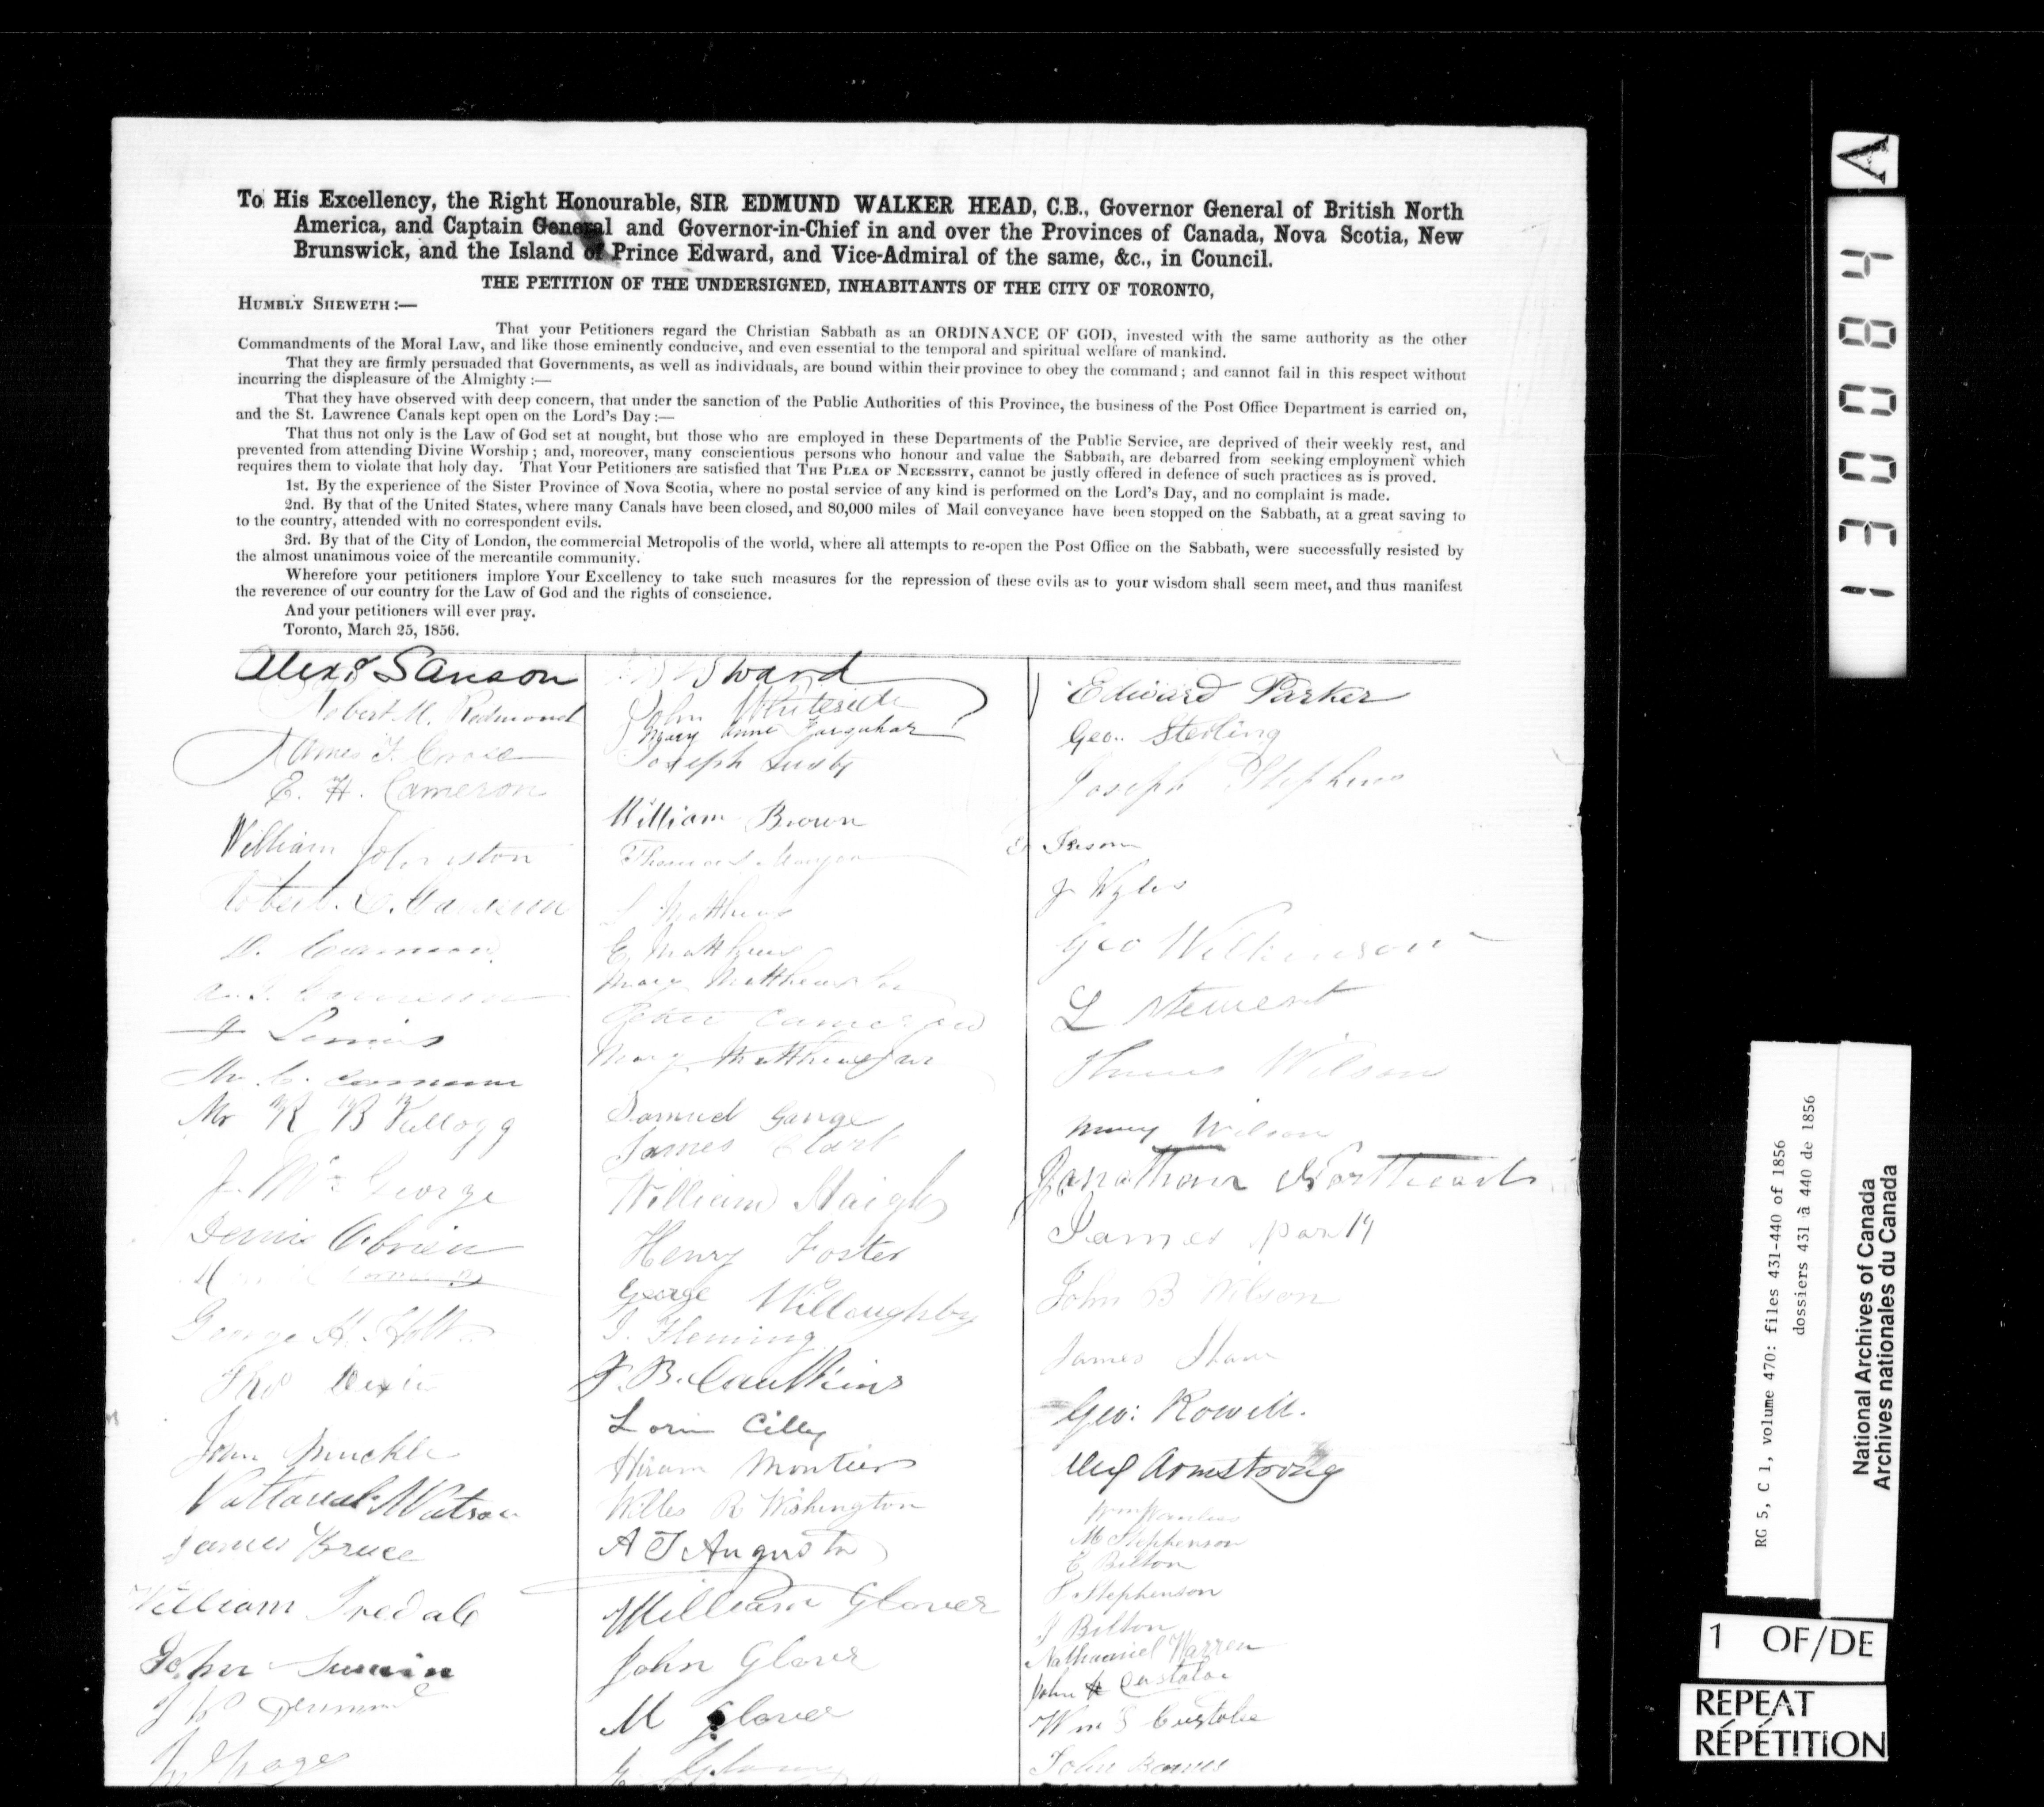 To His Excellency, the Right Honourable, SIR EDMUND WALKER HEAD, C.B., Governor General of British North
America, and Captain General and Governor-in-Chief in and over the Provinces of Canada, Nova Scotia, New
Brunswick, and the Island of Prince Edward, and Vice-Admiral of the same, &c., in Council.
THE PETITION OF THE UNDERSIGNED, INHABITANTS OF THE CITY OF TORONTO,
HUMBLY SHEWETH:—
That your Petitioners regard the Christian Sabbath as an ORDINANCE OF GOD, invested with the same authority as the other
Commandments of the Moral Law, and like those eminently conducive, and even essential to the temporal and spiritual welfare of mankind.
That they are firmly persuaded that Governments, as well as individuals, are bound within their province to obey the command; and cannot fail in this respect without
incurring the displeasure of the Almighty:—
That they have observed with deep concern, that under the sanction of the Public Authorities of this Province, the business of the Post Office Department is carried on,
and the St. Lawrence Canals kept open on the Lord's Day:—
That thus not only is the Law of God set at nought, but those who are employed in these Departments of the Public Service, are deprived of their weekly rest, and
prevented from attending Divine Worship; and, moreover, many conscientious persons who honour and value the Sabbath, are debarred from seeking employment which
requires them to violate that holy day. That Your Petitioners are satisfied that THE PLEA OF NECESSITY, cannot be justly offered in defence of such practices as is proved.
1st. By the experience of the Sister Province of Nova Scotia, where no postal service of any kind is performed on the Lord's Day, and no complaint is made.
2nd. By that of the United States, where many Canals have been closed, and 80,000 miles of Mail conveyance have been stopped on the Sabbath, at a great saving to
to the country, attended with no correspondent evils.
3rd. By that of the City of London, the commercial Metropolis of the world, where all attempts to re-open the Post Office on the Sabbath, were successfully resisted by
the almost unanimous voice of the mercantile community.
Wherefore your petitioners implore Your Excellency to take such measures for the repression of these evils as to your wisdom shall seem meet, and thus manifest
the reverence of our country for the Law of God and the rights of conscience.
And your petitioners will ever pray.
Toronto, March 25, 1856.
Alexr Sanson
Robert M. Redmond
James
E. H. Cameron
William Johnston
Robert
Mr R B Kellogg
J. McGeorge
Dennis Obrien
George H.
Thos
John
Watson
James Bruce
William Iredale
John
Ward
John Whiteside
Mary Anne Farquhar
Joseph
William Brown
Thomas
L Matthews
E Matthews
Mary Matthews
Peter Cameron
Mary Matthews
Samuel Gange
James Clark
William Haigh
Henry Foster
George Willoughby
J. Fleming
J. B. Caulkins
Lorin Cilly
Hiram Montier
Willes R Wishington
A T Augusta
William Glover
John Glover
M Glover
Edward Parker
Geo. Sterling
Joseph Stephens
J Wyles
Geo Wilkinson
L Stewert
Thomas Wilson
Mary Wilson
Jonathan
James
John B Wilson
James Shaw
Geo: Rowell.
Armstrong
Wm Wanless
M Stephenson
E Bilton
Stephenson
J Bilton
Nathaniel Warren
John
Wm
John Barnes
A
13 0 0 8 4
RG 5, C 1, volume 470: files 431-440 of 1856
dossiers 431 à 440 de 1856
National Archives of Canada
Archives nationales du Canada
1 OF/DE
REPEAT
RÉPÉTITION